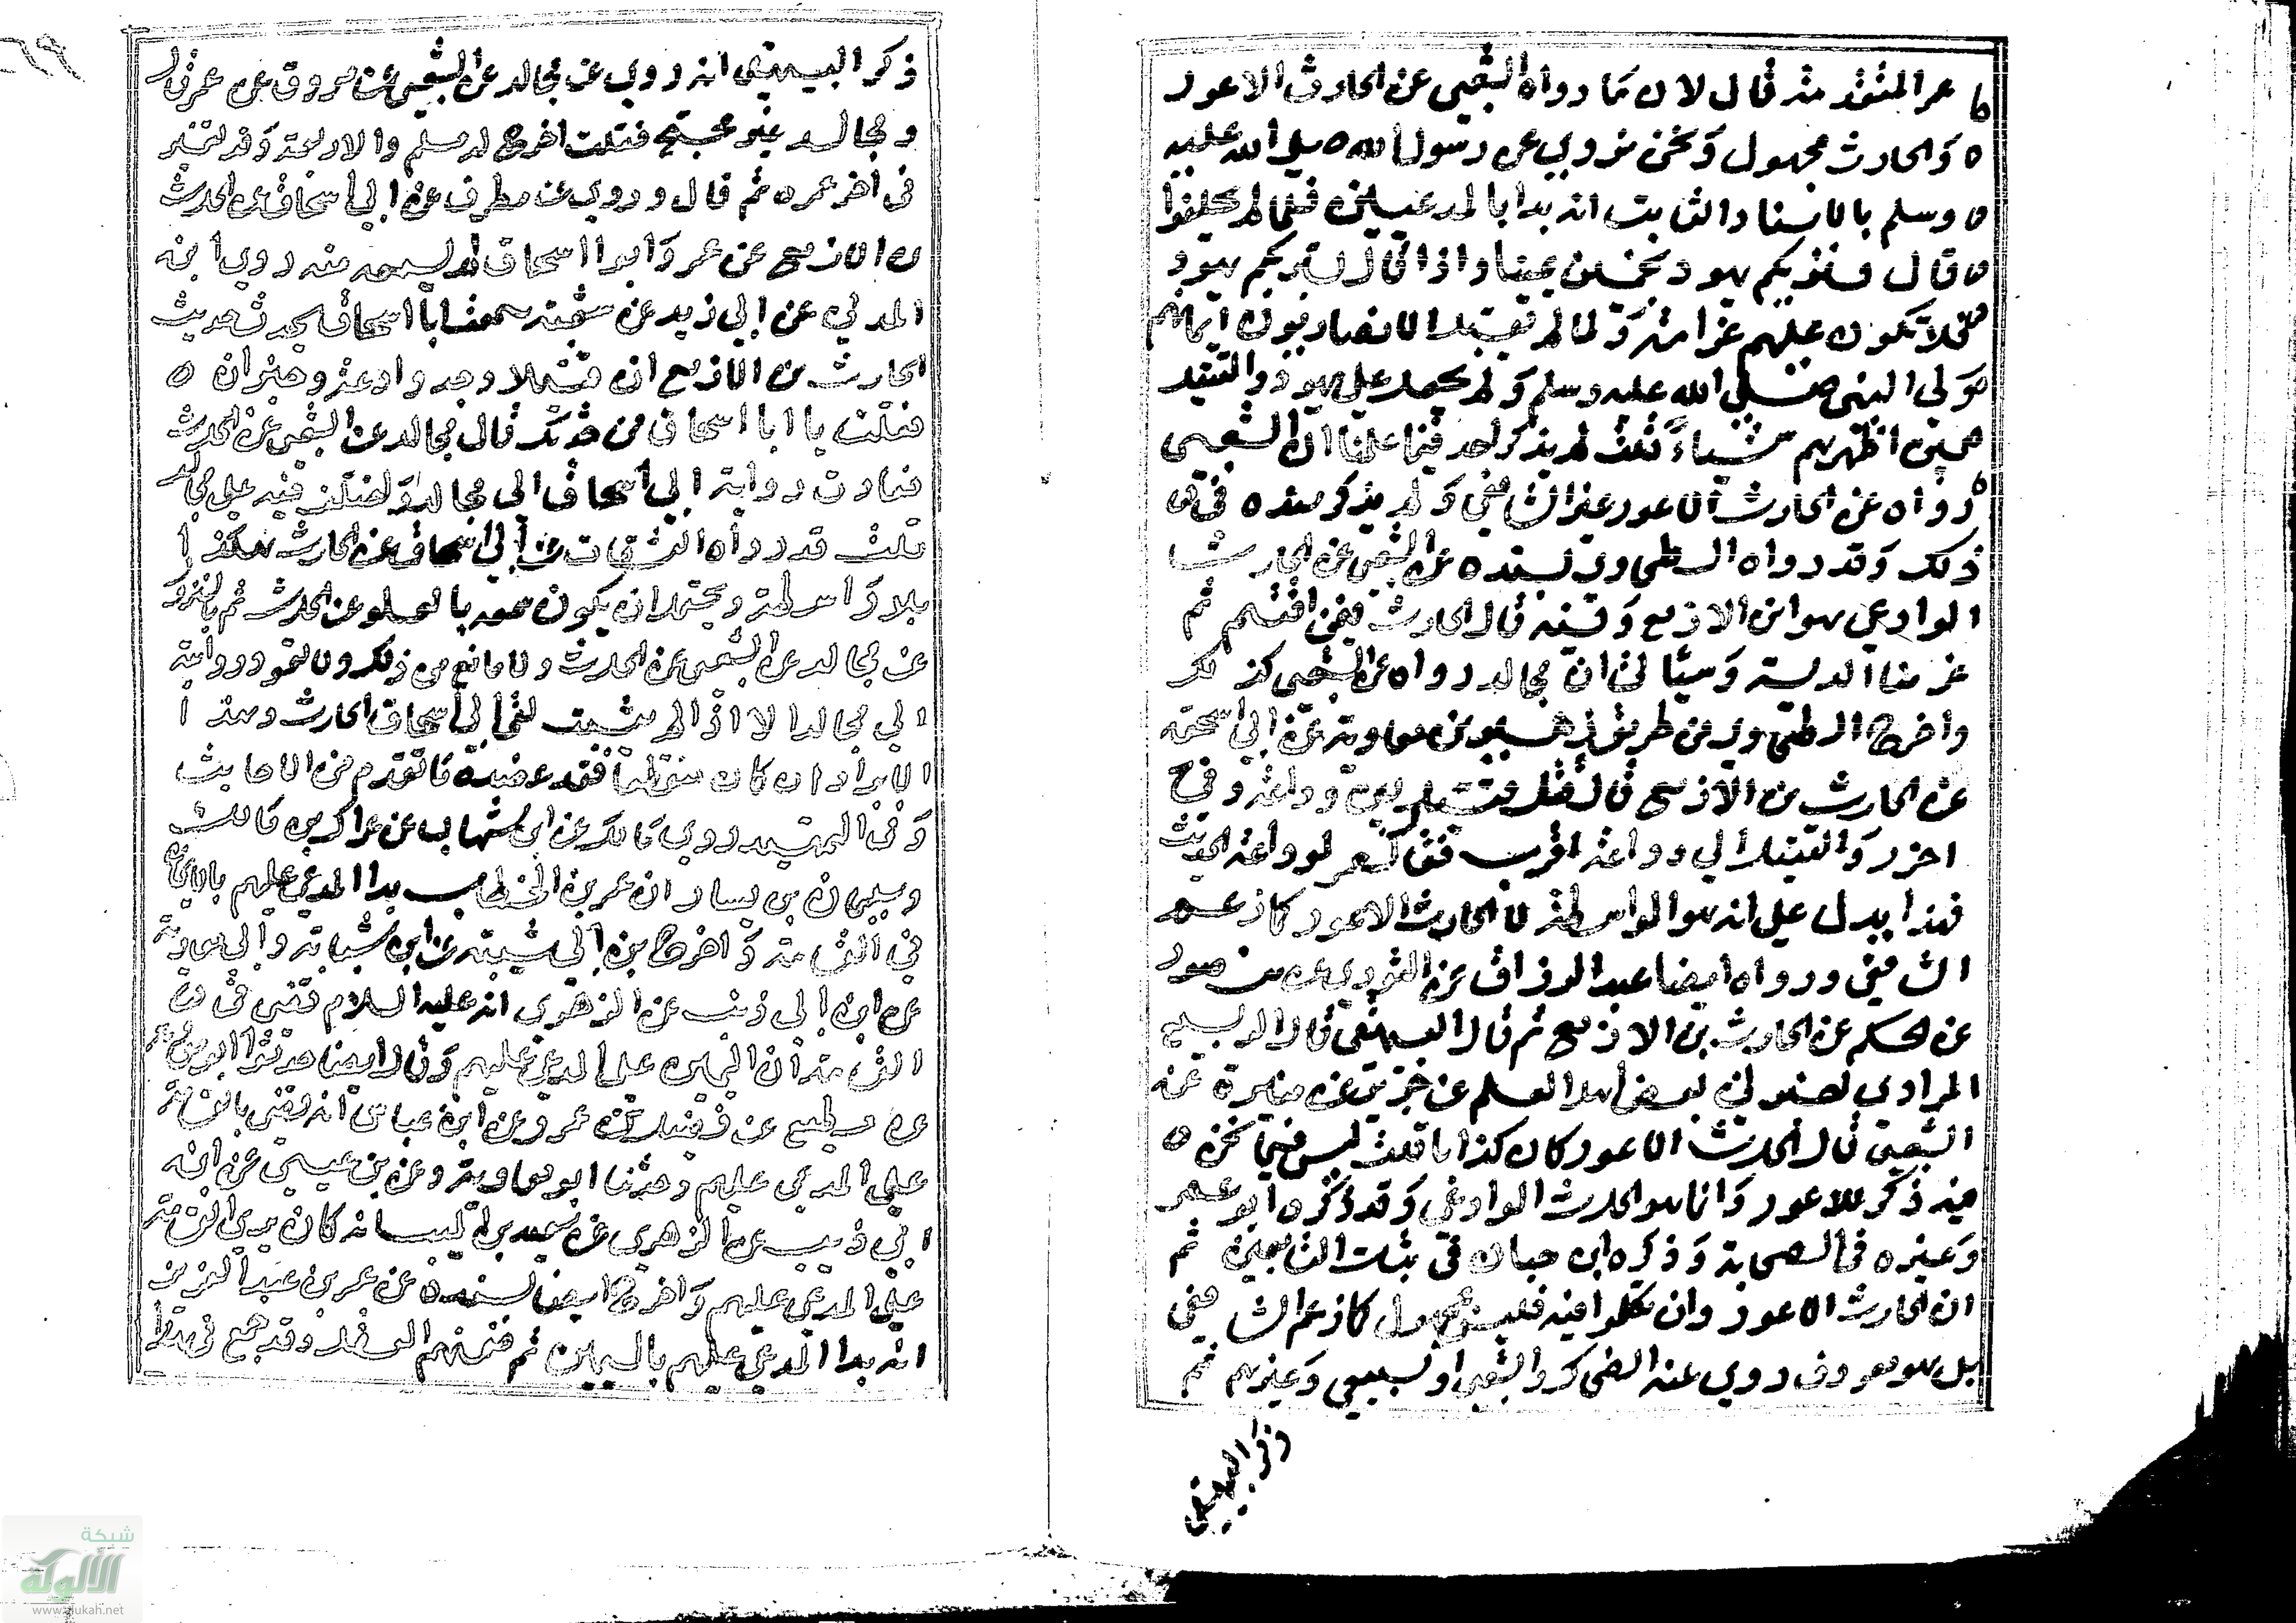 عمر المتقدمة قال لان ما رواه الشعبي عن الحارث الاعور
والحارث مجهول ونحن نروي عن رسول الله صلى الله عليه
وسلم بالاسناد الثابت انه بدا بالمدعيين فلما لم يحلفوا
قال فتبريكم يهود بخمسين يمينا واذا قال تبريكم يهود
فلا تكون عليهم غرامة ولما لم يقبل الانصاريون ايمانهم
النبي صلى الله عليه وسلم ولم يجعل على يهود والقتيل
بين اظهرهم شياء قلت لم يذكر احد فيما علمنا ان الشعبي
رواه عن الحارث الاعور غير الشافعي ولم يذكر سنده في
ذلك وقد رواه الطحاوي بسنده عن الشعبي عن الحارث
الوادعي هو ابن الازمع وفيه قال الحارث ثم
غرمنا الدية وسياتي ان مجالد رواه عن الشعبي كذلك
واخرجه الطحاوي من طريق زهير بن معاوية عن ابي اسحق
عن الحارث بن الازمع قال قتل قتيل بين وداعة وحي
اخر والقتيل الي وداعة اقرب فقال عمر لوداعة الحديث
فهذا يدل على انه هو الواسطة لا الحارث الاعور كما زعم
الشافعي ورواه ايضا عبد الرزاق عن الثوري عن منصور
عن الحكم عن الحارث بن الازمع ثم قال البيهقي قال الربيع
المرادي اخبرني بعض اهل العلم عن جرير عن مغيرة عن
الشعبي قال الحارث الاعور كان كذابا قلت ليس فيما نحن
فيه ذكر للاعور وانما هو الحارث الوادعي وقد ذكره ابو عمر
وغيره في الصحابة وذكره ابن حبان في ثقات التابعين ثم
ان الحارث الاعور وان تكلموا فيه فليس بمجهول كما زعم الشافعي
بل هو معروف روي عنه الضحاك والشعبي والسبيعي وغيرهم ثم
ذكر البيهقي
ذكر البيهقي انه روي عن مجالد عن الشعبي عن مسروق عن عمر قال
ومجالد غير محتج به قلت اخرج له مسلم والاربعة وقد تغير
في اخر عمره ثم قال وروي عن مطرف عن ابي اسحاق عن الحارث
بن الازمع عن عمر وابو اسحاق لم يسمعه منه روي ابن
المديني عن ابي زيد عن شعبة سمعت ابا اسحاق يحدث حديث
الحارث بن الازمع ان قتيلا وجد وادعة وخيران
فقلت يا ابا اسحاق من حدثك قال مجالد عن الشعبي عن الحارث
فعادت رواية ابي اسحاق الي مجالد واختلف فيه على مجالد
قلت قد رواه الثقات عن ابي اسحاق عن الحارث هكذا
بلا واسطة ويحتمل ان يكون سمعه بالعلو عن الحارث ثم بالنزول
عن مجالد عن الشعبي عن الحارث ولا مانع من ذلك ولا تعود روايته
الي مجالد الا اذا لم يثبت لقي ابي اسحاق الحارث وهذا
الاثر وان كان منقطعا فقد عضده ما تقدم من الاحاديث
وفي التمهيد روي مالك عن ابن شهاب عن عراك بن مالك
وسليمان بن يسار ان عمر بن الخطاب بدا المدعي عليهم بالايمان
في القسامة واخرج ابن ابي شيبة عن ابن شبابة وابي معاوية
عن ابن ابي ذئب عن الزهري انه عليه السلام قضي في
القسامة ان اليمين على المدعي عليهم وقال ايضا حدثنا ابو معاوية
عن مطيع عن فضيل بن عمرو عن ابن عباس انه قضي بالقسامة
على المدعي عليهم وحدثنا ابو معاوية ومعن بن عيسي عن ابن
ابي ذيب عن الزهري عن سعيد بن المسيب انه كان يري القسامة
على المدعي عليهم واخرج ايضا بسنده عن عمر بن عبد العزيز
انه بدا المدعي عليهم باليمين ثم ضمنهم العقل وقد جمع في هذا
شبكة الألوكة
www.alukah.net